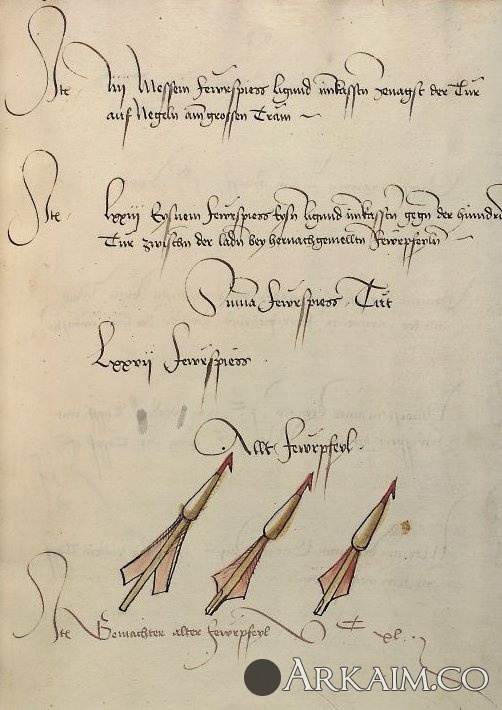 Ite iiij Messein fewrspiess ligend im kassten zenagst der Tür
auf Negeln am grossen Tram
Ite Lxxiij Eysnein fewrspiess Eysn ligend im kassten gegen der hindren
Tür zwischn der ladn bey hernachgemelltn fewrpfeyln
Suma fewrspiess Tut
Lxxvij fewrspiess
Allt fewrpfeyl
Ite Gemachter alter fewrpfeyl xl
ARKAIM.CO